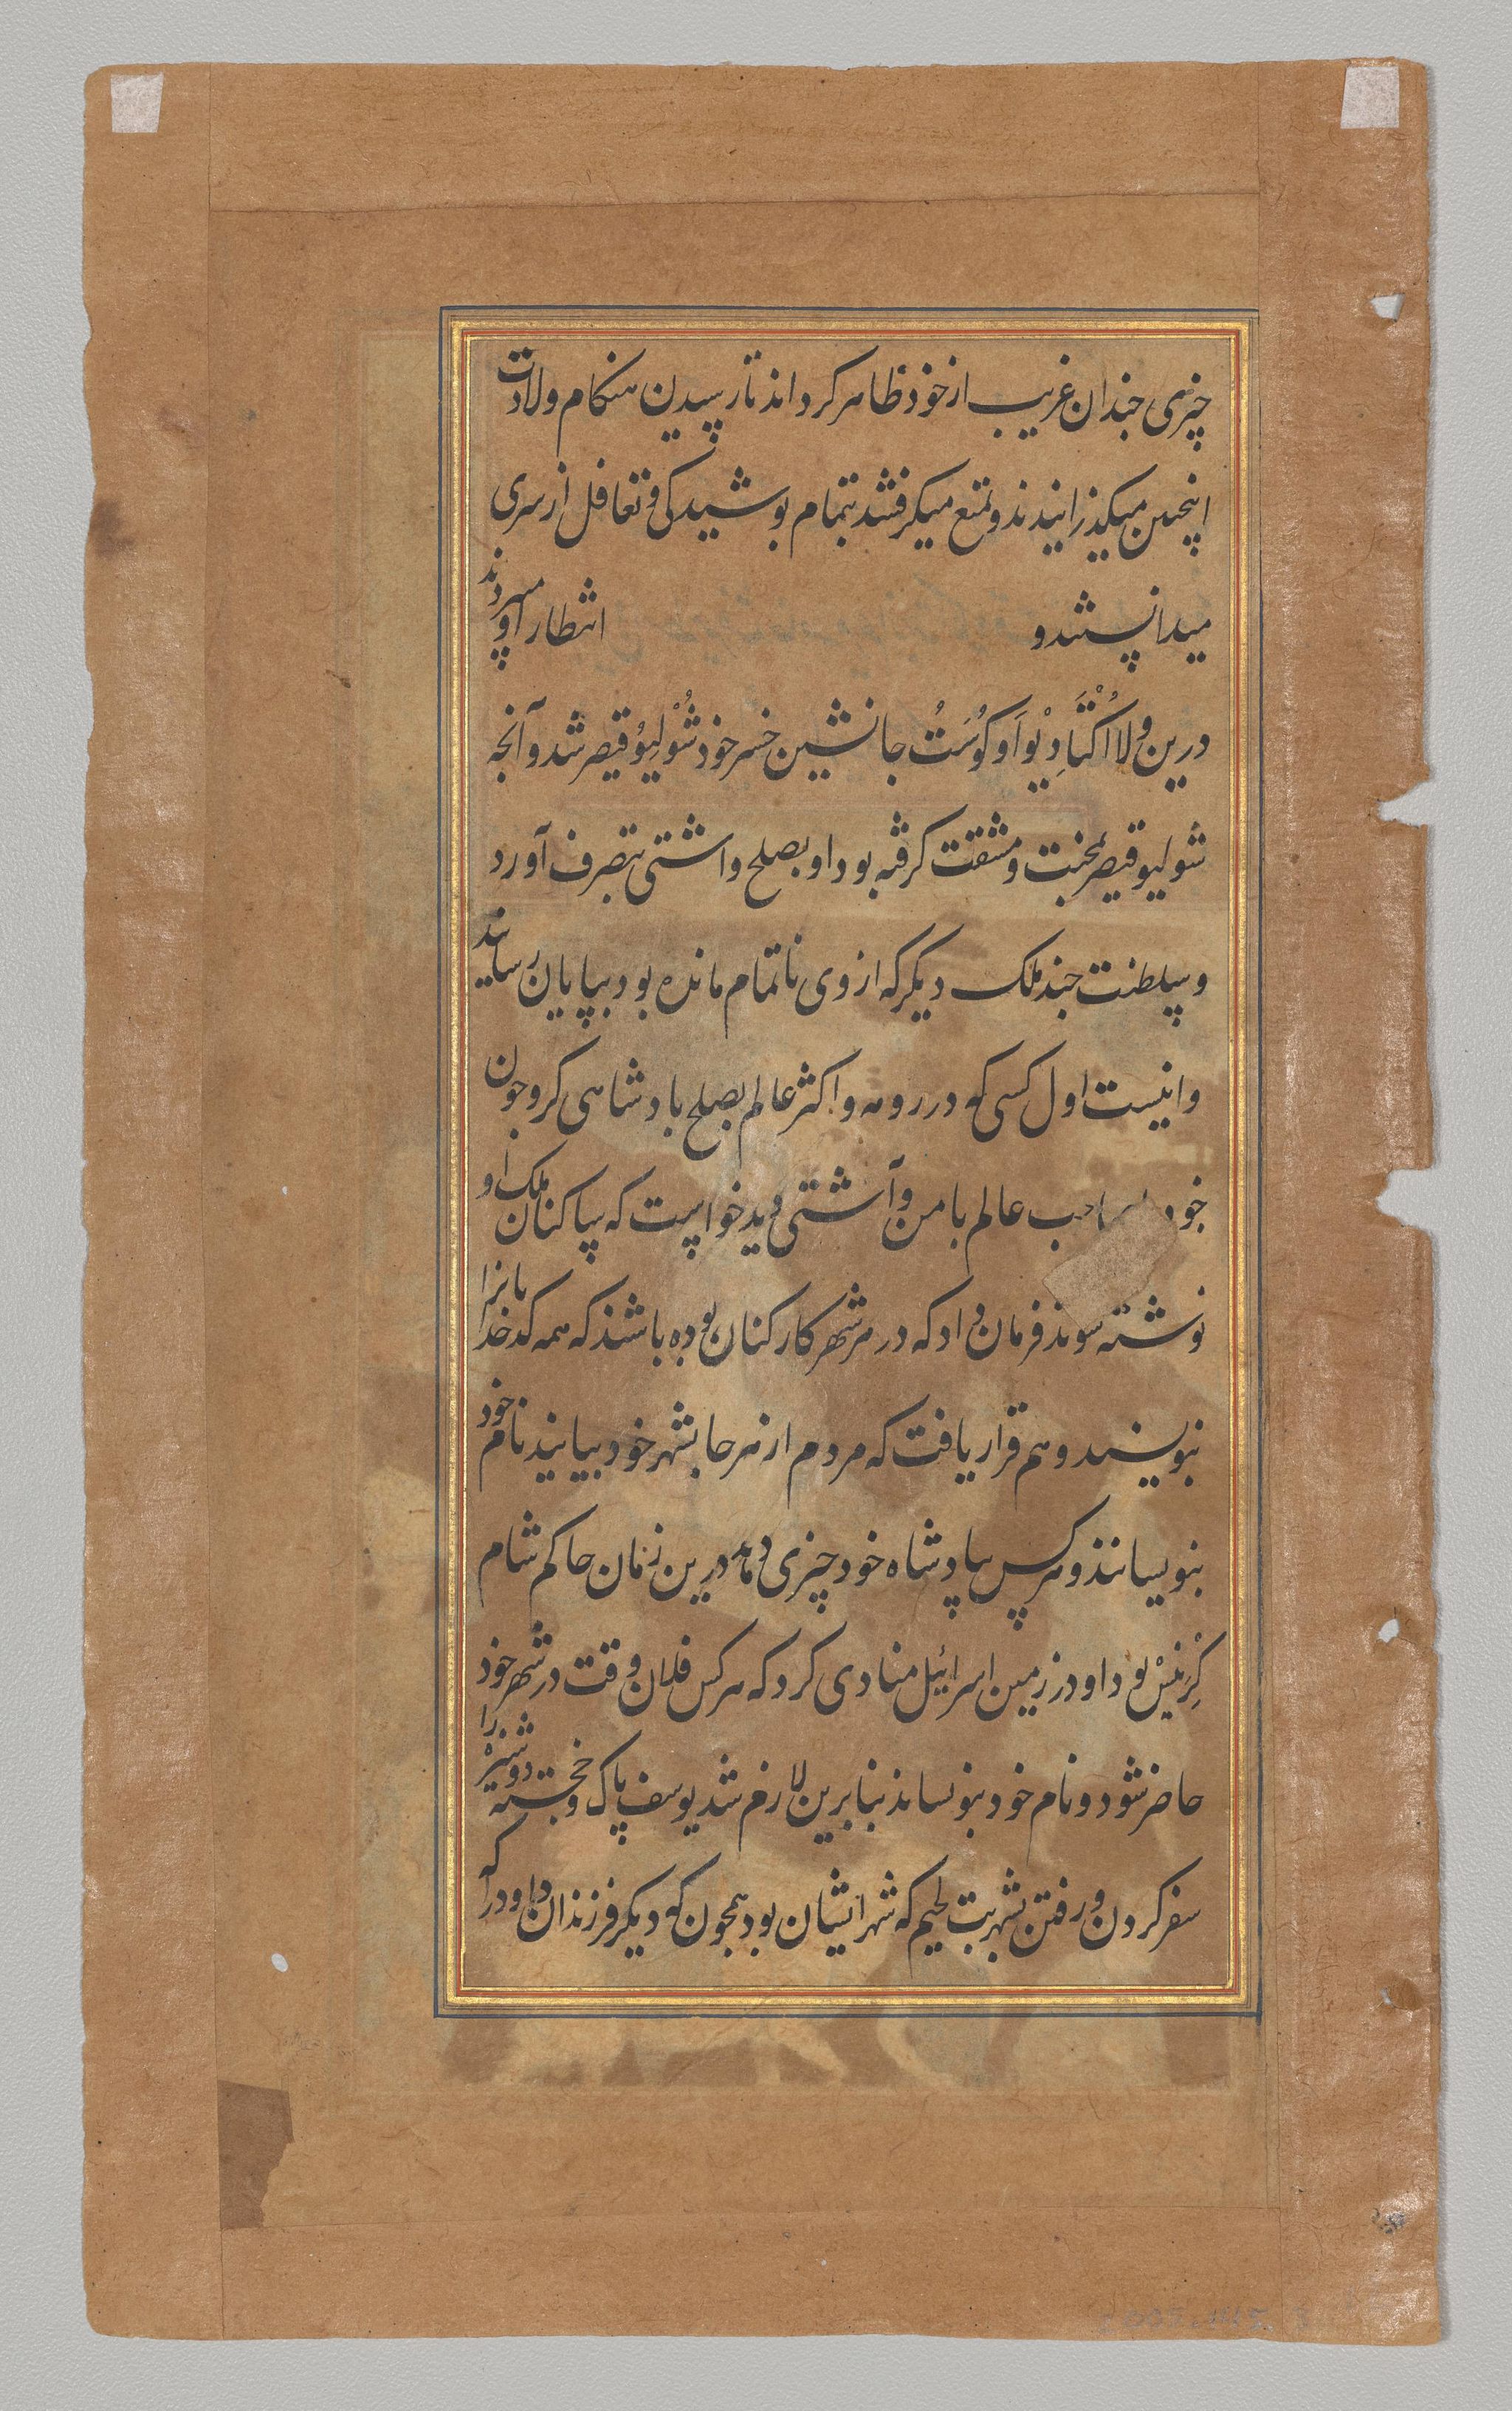 چیزی چندان غریب از خود ظاهر کرد اند تا رسیدن هنکام ولادت
اینچنین میکذرانیدند و تمتع میکرفتند بتمام پوشیدکی و تغافل از سری
میدانستند و انتظار او میبردند
درین ولا اُکْتَاوِیْواَوکوُسْتُ جانشین خسر خود شُوْلِیوُ قیصر شد و آنجه
شولیو قیصر بمحنت و مشقت کرفته بود او بصلح و آشتی بتصرف آورد
و سلطنت چند ملک دیکر که از وی ناتمام مانده بود بپایان رسانید
و اینست اول کسی که در رومه و اکثر عالم بصلح بادشاهی کرد و جون
خود صاحب عالم با من و آشتی دید خواست که ساکنان ملک او
نوشته شوند فرمان داد که در هر شهر کارکنان بوده باشند که همه کدخدایانرا
بنویسند و هم قرار یافت که مردم از هر جا بشهر خود بیایند نام خود
بنویسانند و هر کس بپادشاه خود چیزی دهد درین زمان حاکم شام
کرنیس بود او در زمین اسرائیل منادی کرد که هر کس فلان وقت در شهر خود
حاضر شود و نام خود بنویساند بنابرین لازم شد یوسف پاک و خجسته دوشیزه را
سفر کردن و رفتن بشهر بیت لحیم که شهر ایشان بود همچون که دیکر فرزندان داود را که